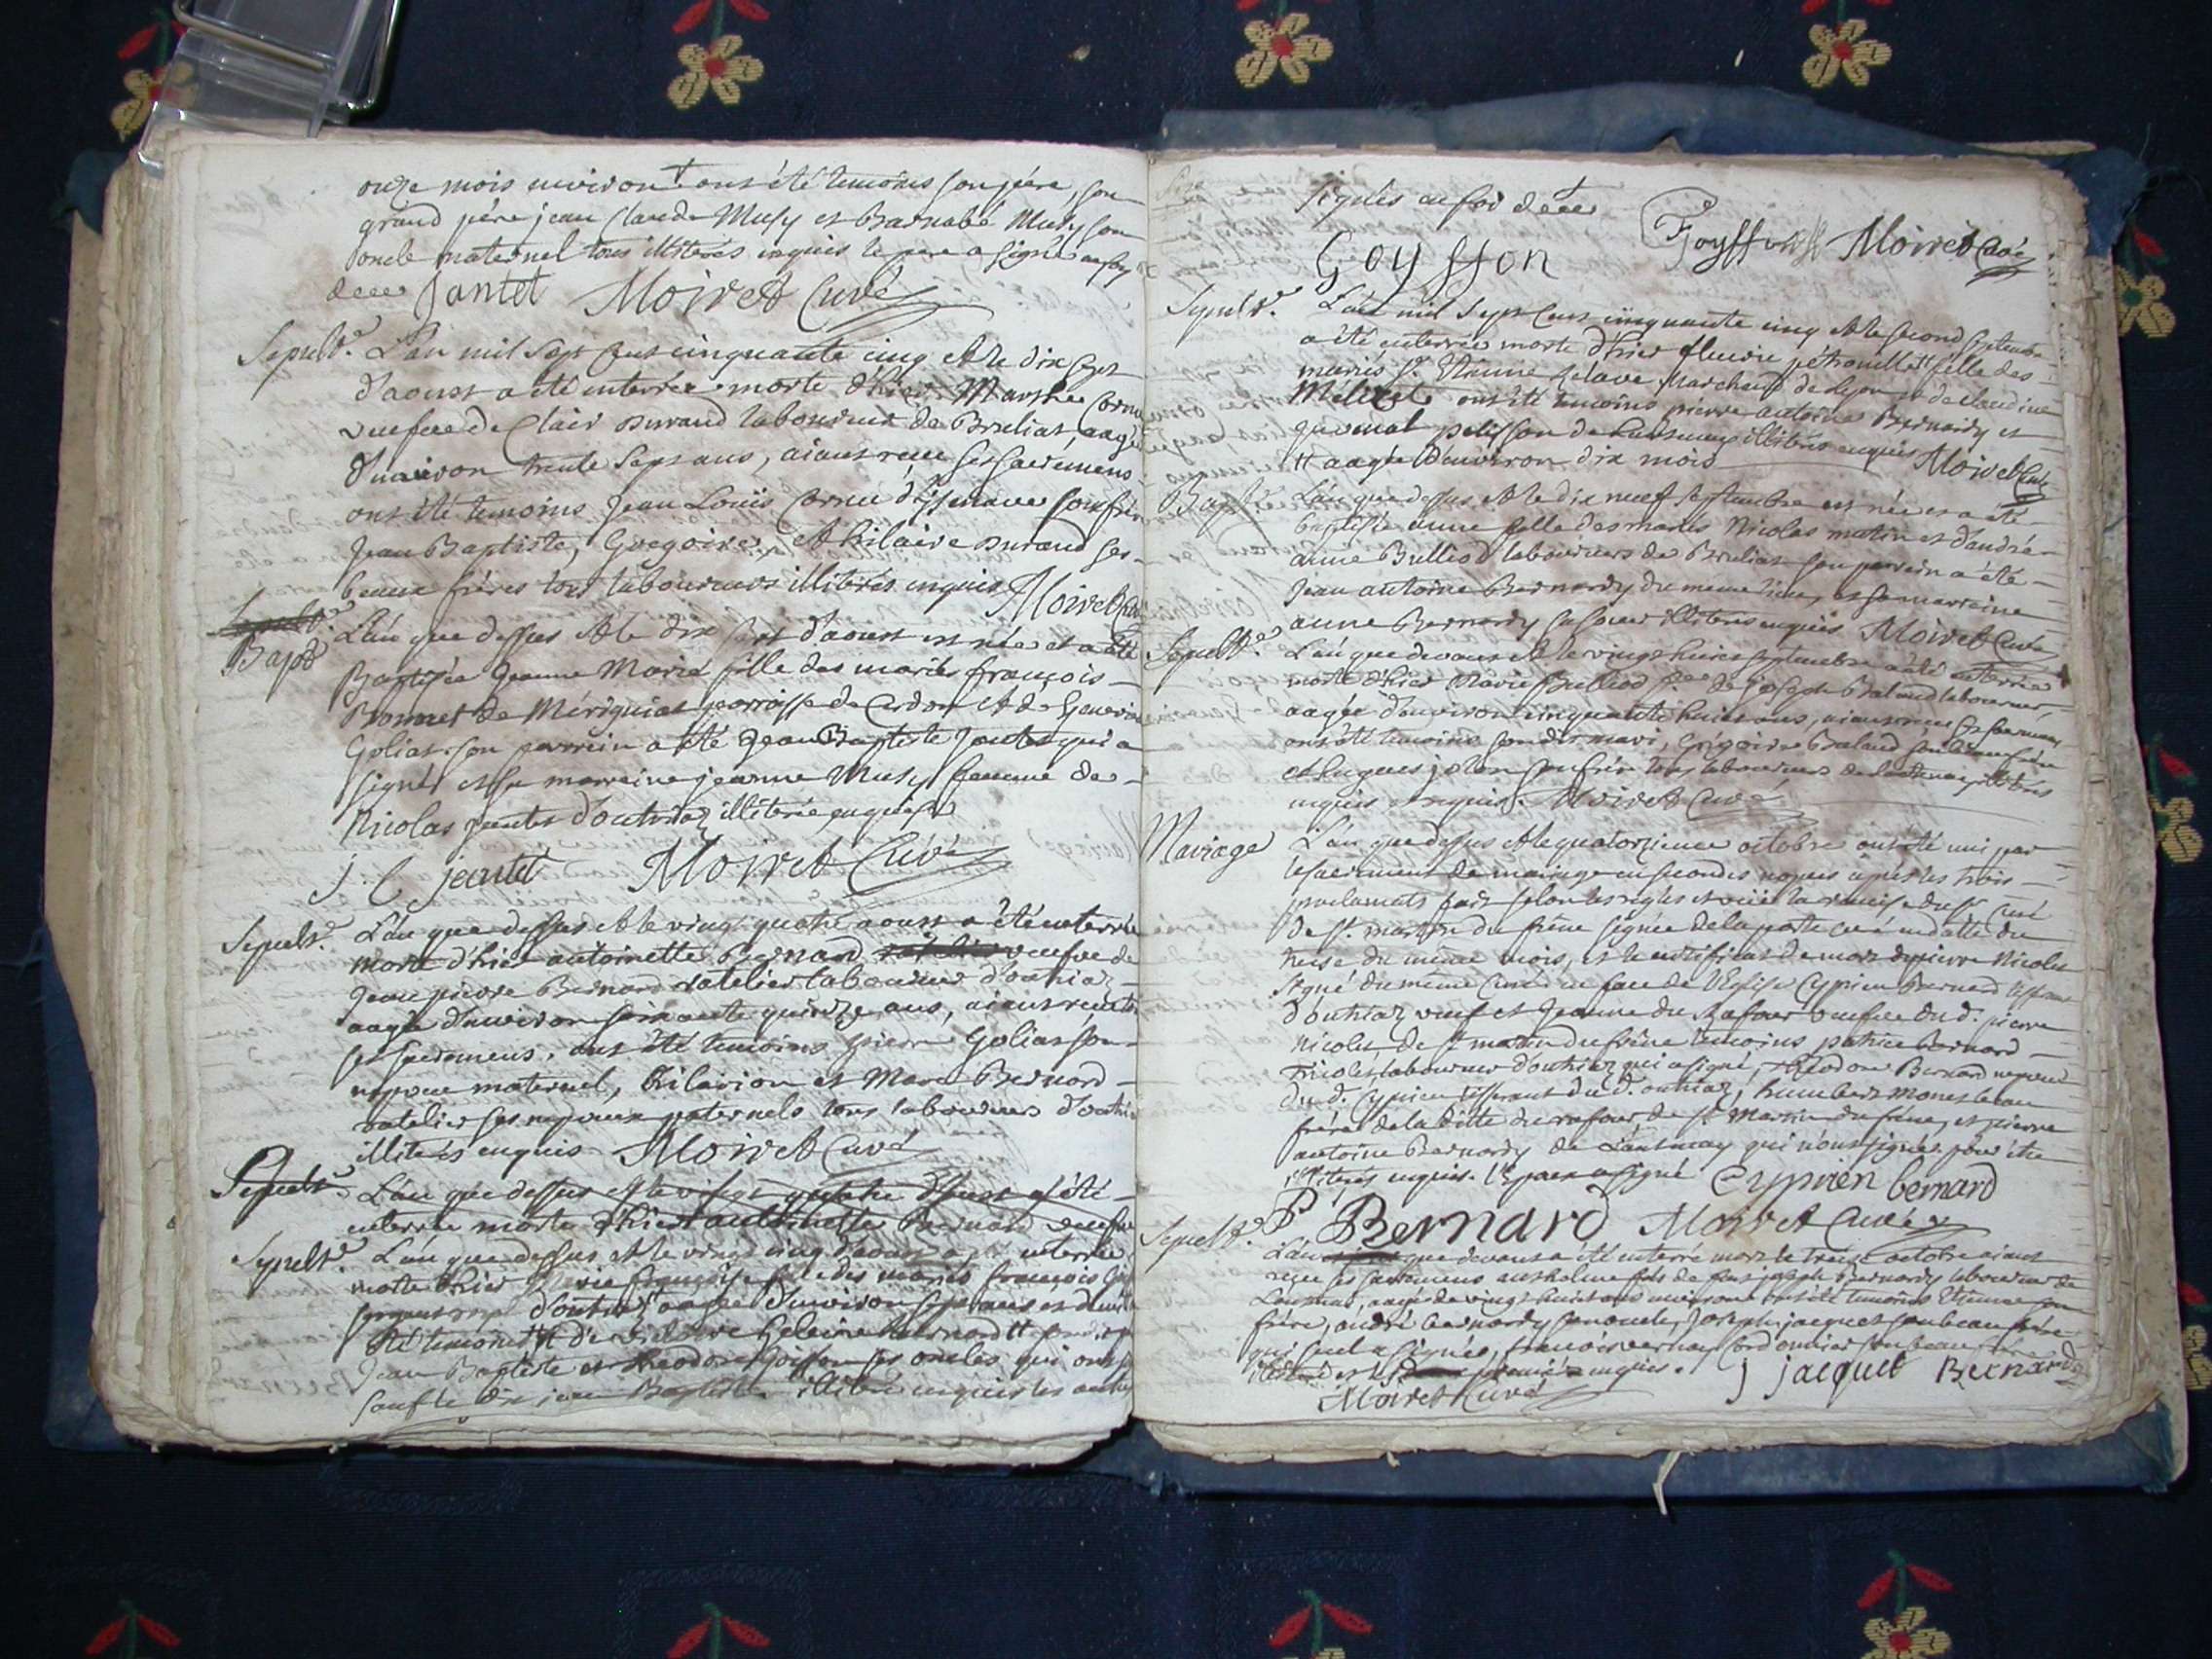 onze mois environ + ont été temoins son pere, son
grand pére jean Claude Musy et Barnabé Musy son
oncle maternel tous illiterés enquis le pere a signé
Jantet Moiret Curé
Sepult.e L'an mil Sept Cent cinquante cinq et le dix Sept
d'aoust a été enterrée morte d'hier Marthe Cornu
veufve de Clair Durand laboureur de Breliat, aagée
d'environ trente Sept ans, aiant receu ses sacremens
ont été temoins Jean Louis Cornu son frere
Jean Baptiste, Gregoire, et hilaire Durand ses
beaux fréres tous laboureurs illiterés enquis Moiret
Bapt.e L'an que dessus et le dix sept d'aoust est née et a été
Baptisée Jeanne Marie fille des mariés françois
Bonnet de Mérignat parroisse de Cerdon et de
Goliat. son parrein a été Jean Baptiste Jantet qui a
signé et sa marreine jeanne Musy femme de
Nicolas Jantet d'outriaz illiterée enquise
J. C jantet Moiret Curé
Sepult.e L'an que dessus et le vingt quatre aoust a été enterrée
morte d'hier antoinette Bernard veufve de
Jean pierre Bernard ratelier laboureur d'outriaz
aagée d'environ soixante quinze ans, aiant receu
ses sacremens. ont été temoins pierre Goliat son
nepveu maternel, hilarion et Marc Bernard
ratelier ses nepveux paternels tous laboureurs d'outriaz
illiterés enquis Moiret Curé
Sepult.e L'an que dessus et le vingt quatre d'aoust a été
enterrée morte d'hier antoinette Bernard veufve
Sepult.e L'an que dessus et le vingt cinq d'aoust a été enterrée
morte d'hier Marie françoise fille des mariés françois
d'outriaz aagée d'environ sept ans et demi
été temoins helaine Bernard
Jean Baptiste et theodore Goiffon ses oncles qui ont
sauf le dit jean Baptiste illiteré enquis les autres
signés
Goyffon Goyffon Moiret Curé
Sepult.e L'an mil Sept Cent cinquante cinq et le second septembre
a été enterrée morte d'hier fleurie pétronille fille des
mariés S.r Etienne Marchand de Lyon et de claudine
ont été temoins pierre antoine Bernardy et
pelisson de Lantenay illiterés enquis Moiret Curé
aagée d'environ dix mois
Bapt.e L'an que dessus et le dix neuf septembre est née et a été
baptisée anne fille des mariés Nicolas matin et d'andré
anne Bulliod laboureurs de Breliat son parrein a été
Jean antoine Bernardy du meme lieu, et sa marreine
anne Bernardy sa soeur illiterés enquis Moiret Curé
Sepult.e L'an que devant et le vingt huict septembre a été enterrée
morte d'hier Marie Bulliod f.e de Joseph Baland laboureur,
aagée d'environ cinquante huict ans, aiant receu ses sacremens
ont été temoins son dit mari, Grégoire Baland son beau frére
et hugues jolion son frére tous laboureurs de Lantenay illiterés
enquis et requis. Moiret Curé
Mariage L'an que dessus et le quatorzieme octobre ont été uni par
le sacrement de mariage en secondes nopces aprés les trois
proclamats fait selon les régles et veüe la remise du S.r Curé
de St. martin du frêne signée Delaporte curé en datte du
treise du même mois, et le certificat de mort de pierre Nicolet
signé du même Curé en face de l'Eglise Cyprien Bernard tisserant
d'outriaz veuf et Jeanne du Rafour veufve du d. pierre
Nicolet de St martin du frêne témoins patrice Bernard
laboureur d'outriaz qui a signé, théodore Bernard nepveu
du d. Cyprien tisserant du d. outriaz, humbert Monet beau
frére de la ditte du rafour, de St Martin du frêne, et pierre
antoine Bernardy de Lantenay qui n'ont signés pour être
illiterés enquis. l'epoux a signé Cyprien bernard
P Bernard Moiret Curé
Sepult.e L'an que devant a été enterré mort le treize octobre aiant
receu ses sacremens anthelme fils de feu joseph Bernardy laboureur de
Lantenay, aagé de vingt huict ans environ ont été temoins Etienne son
frére, andré bernardy son oncle, Joseph jacquet son beau frére
qui seul a signé, francois vernay Cordonnier son beau frere
enquis. J jacquet Bernard
Moiret Curé